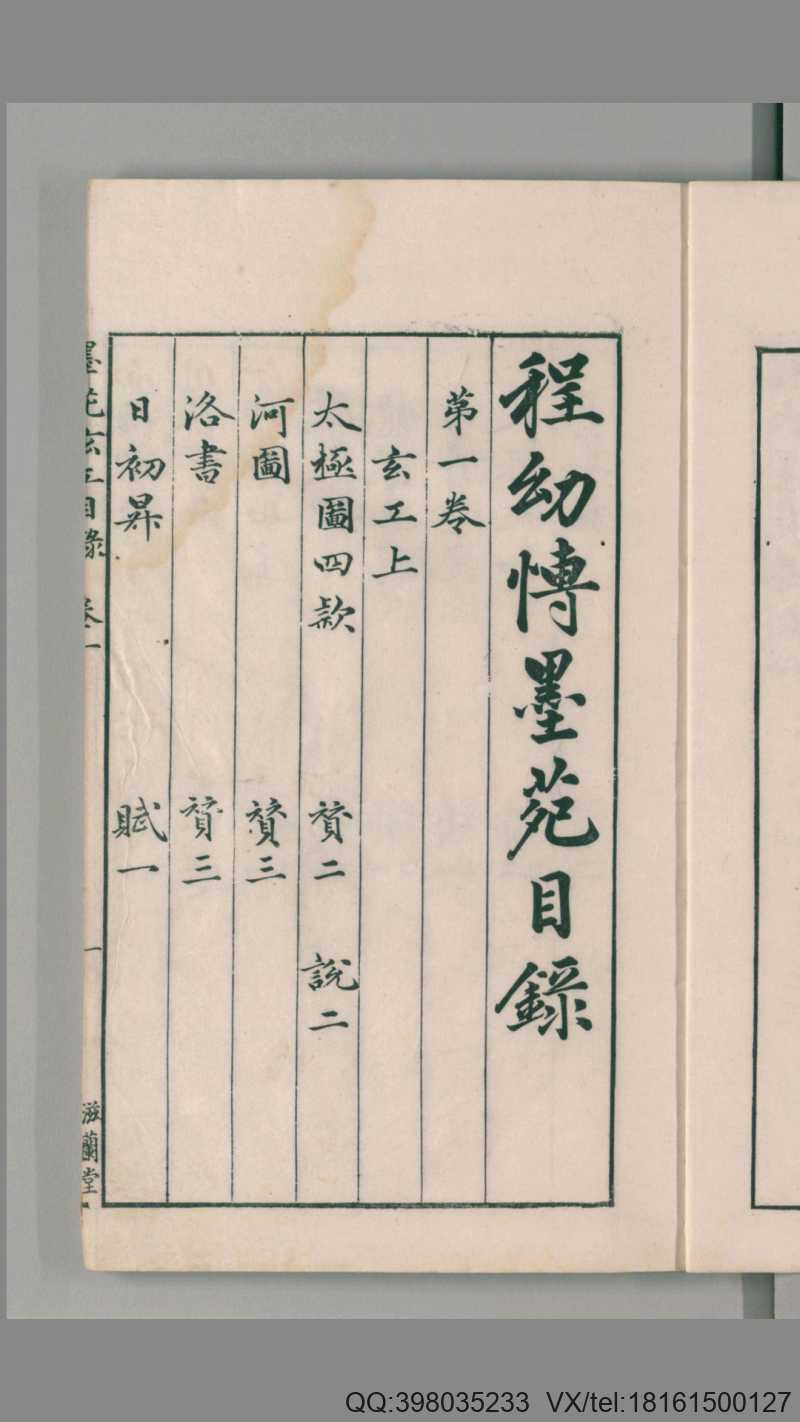 程幼博墨苑目錄
第一卷
玄工上
太極圖四款 贊二 說二
河圖 贊三
洛書 贊三
日初昇 賦一
墨苑玄工目錄 卷一 一 滋蘭堂
QQ:398035233 VX/tel:18161500127